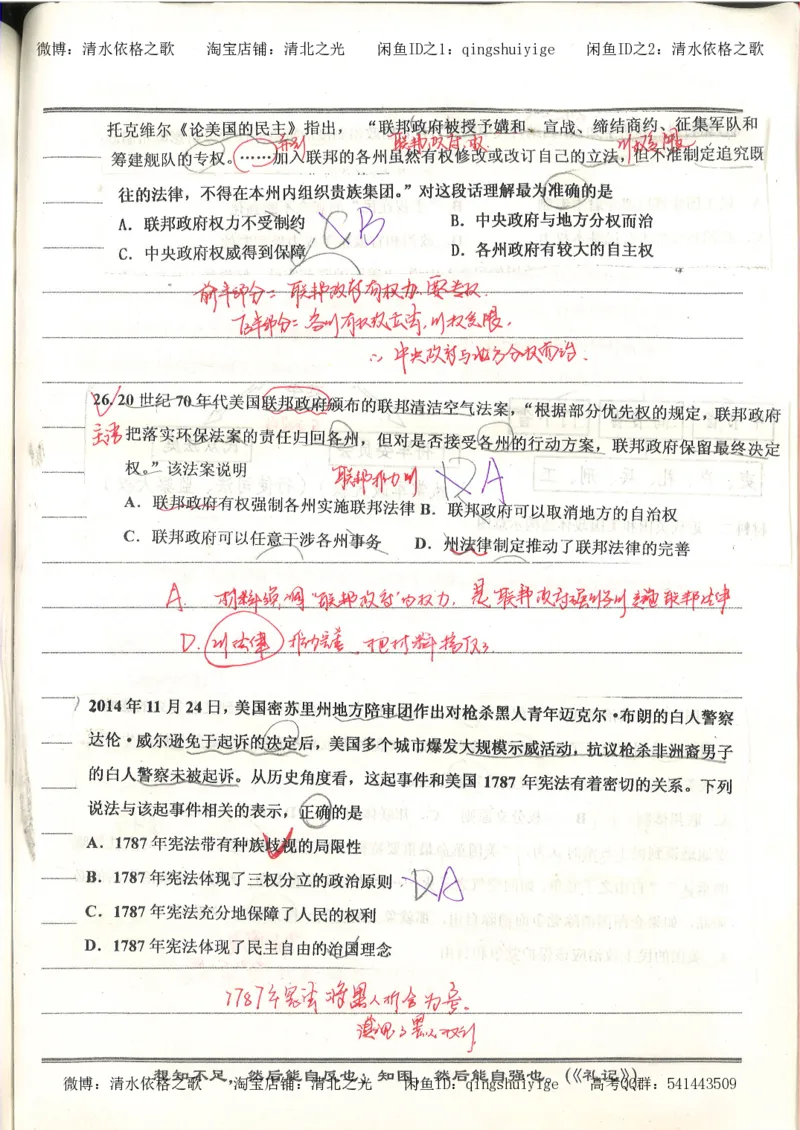 微博：清水依格之歌 淘宝店铺：清北之光 闲鱼ID之1：qingshuiyige 闲鱼ID之2：清水依格之歌
托克维尔《论美国的民主》指出，“联邦政府被授予媾和、宣战、缔结商约、征集军队和
筹建舰队的专权。……加入联邦的各州虽然有权修改或改订自己的立法，但不准制定追究既
往的法律，不得在本州内组织贵族集团。”对这段话理解最为准确的是
A．联邦政府权力不受制约 B．中央政府与地方分权而治
C．中央政府权威得到保障 D．各州政府有较大的自主权
C B
前半部分：联邦政府有权力，要专权.
后半部分：各州有权改立法，州权受限.
∴ 中央政府与地方分权而治.
26. 20 世纪 70 年代美国联邦政府颁布的联邦清洁空气法案，“根据部分优先权的规定，联邦政府
把落实环保法案的责任归回各州，但对是否接受各州的行动方案，联邦政府保留最终决定
权。”该法案说明
D A
A．联邦政府有权强制各州实施联邦法律 B．联邦政府可以取消地方的自治权
C．联邦政府可以任意干涉各州事务 D．州法律制定推动了联邦法律的完善
A. 材料强调“联邦政府”的权力，是联邦政府强制各州实施联邦法律
D. 州法律 推动完善，把材料搞反了.
2014 年 11 月 24 日，美国密苏里州地方陪审团作出对枪杀黑人青年迈克尔·布朗的白人警察
达伦·威尔逊免于起诉的决定后，美国多个城市爆发大规模示威活动，抗议枪杀非洲裔男子
的白人警察未被起诉。从历史角度看，这起事件和美国 1787 年宪法有着密切的关系。下列
说法与该起事件相关的表示，正确的是
A．1787 年宪法带有种族歧视的局限性
B．1787 年宪法体现了三权分立的政治原则
D A
C．1787 年宪法充分地保障了人民的权利
D．1787 年宪法体现了民主自由的治国理念
1787年宪法将黑人折合为
黑人权利
想知不足，然后能自反也；知困，然后能自强也。(《礼记》)
微博：清水依格之歌 淘宝店铺：清北之光 闲鱼ID之1：qingshuiyige 高考QQ群：541443509